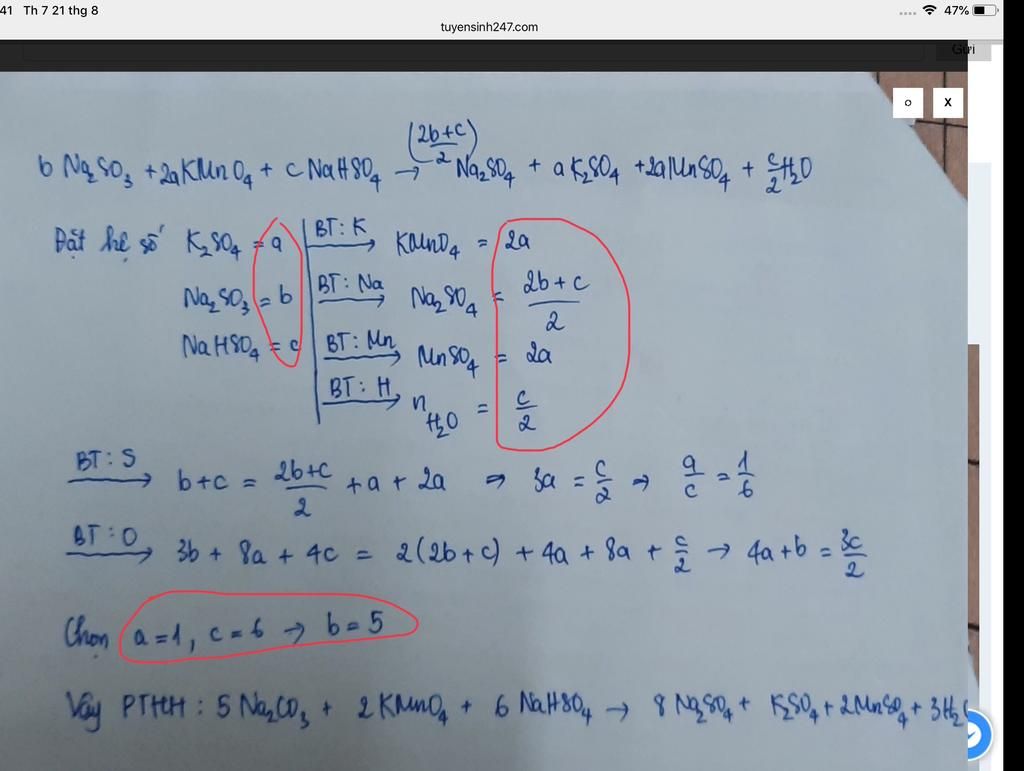 41 Th 7 21 thg 8
47%
tuyensinh247.com
Gửi
X
b Na₂SO₃ + 2aKMnO₄ + c NaHSO₄ → (2b+c)/2 Na₂SO₄ + a K₂SO₄ + 2aMnSO₄ + c/2 H₂O
Đặt hệ số K₂SO₄ = a BT: K → KMnO₄ = 2a
Na₂SO₃ = b BT: Na → Na₂SO₄ = (2b+c)/2
NaHSO₄ = c BT: Mn → MnSO₄ = 2a
BT: H → n H₂O = c/2
BT: S → b+c = (2b+c)/2 + a + 2a ⇒ 3a = c/2 → a/c = 1/6
BT: O → 3b + 8a + 4c = 2(2b+c) + 4a + 8a + c/2 → 4a+b = 3c/2
Chọn a=1, c=6 → b=5
Vậy PTHH: 5 Na₂CO₃ + 2 KMnO₄ + 6 NaHSO₄ → 8 Na₂SO₄ + K₂SO₄ + 2MnSO₄ + 3H₂